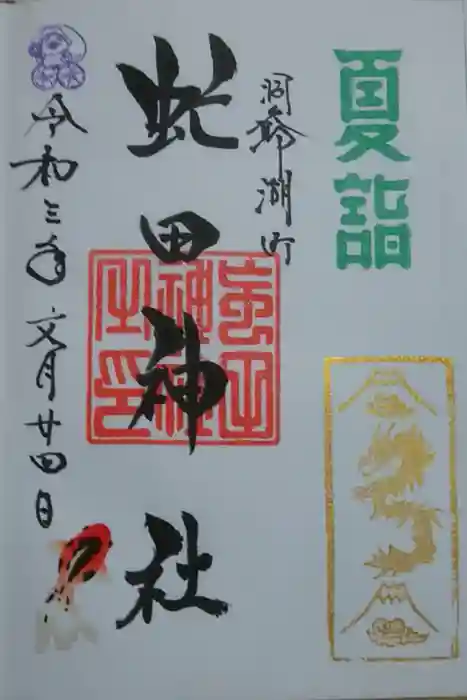 夏詣
洞爺湖町
虻田神社
令和三年文月廿四日